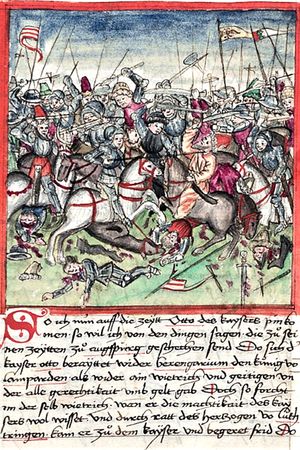 So ich nun auff die zeytt Otto des kaysers pin ko
men so wil ich von den dingen sagen die zu sei
nen zeytten zu augspurg geschechen send Do sich d
kayser otto berayttet wider berengarium den künig vo
lamparden als wider ain wietrich vnd geitigen vn
der alle gerechtikait vmb gelt gab Doch so forcht
im der selb wietrich wan er die machtikait des kay
sers wol wisset vnd durch ratt des hertzogen vo luth
ringen kam er zu dem kayser vnd begeret frid Do